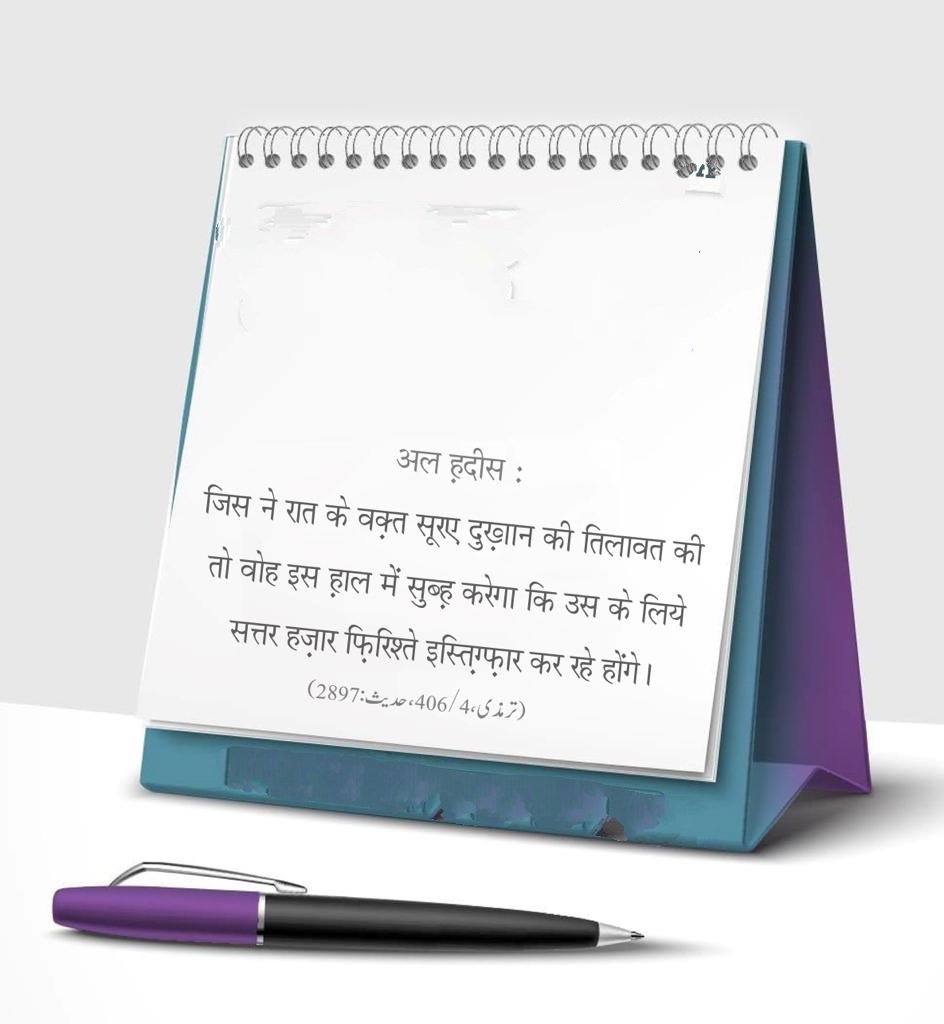 अल ह़दीस :
जिस ने रात के वक़्त सूरए दुख़ान की तिलावत की
तो वोह इस ह़ाल में सुब्ह़ करेगा कि उस के लिये
सत्तर हज़ार फ़िरिश्ते इस्तिग़्फ़ार कर रहे होंगे।
(ترمذی،4/406،حدیث:2897)